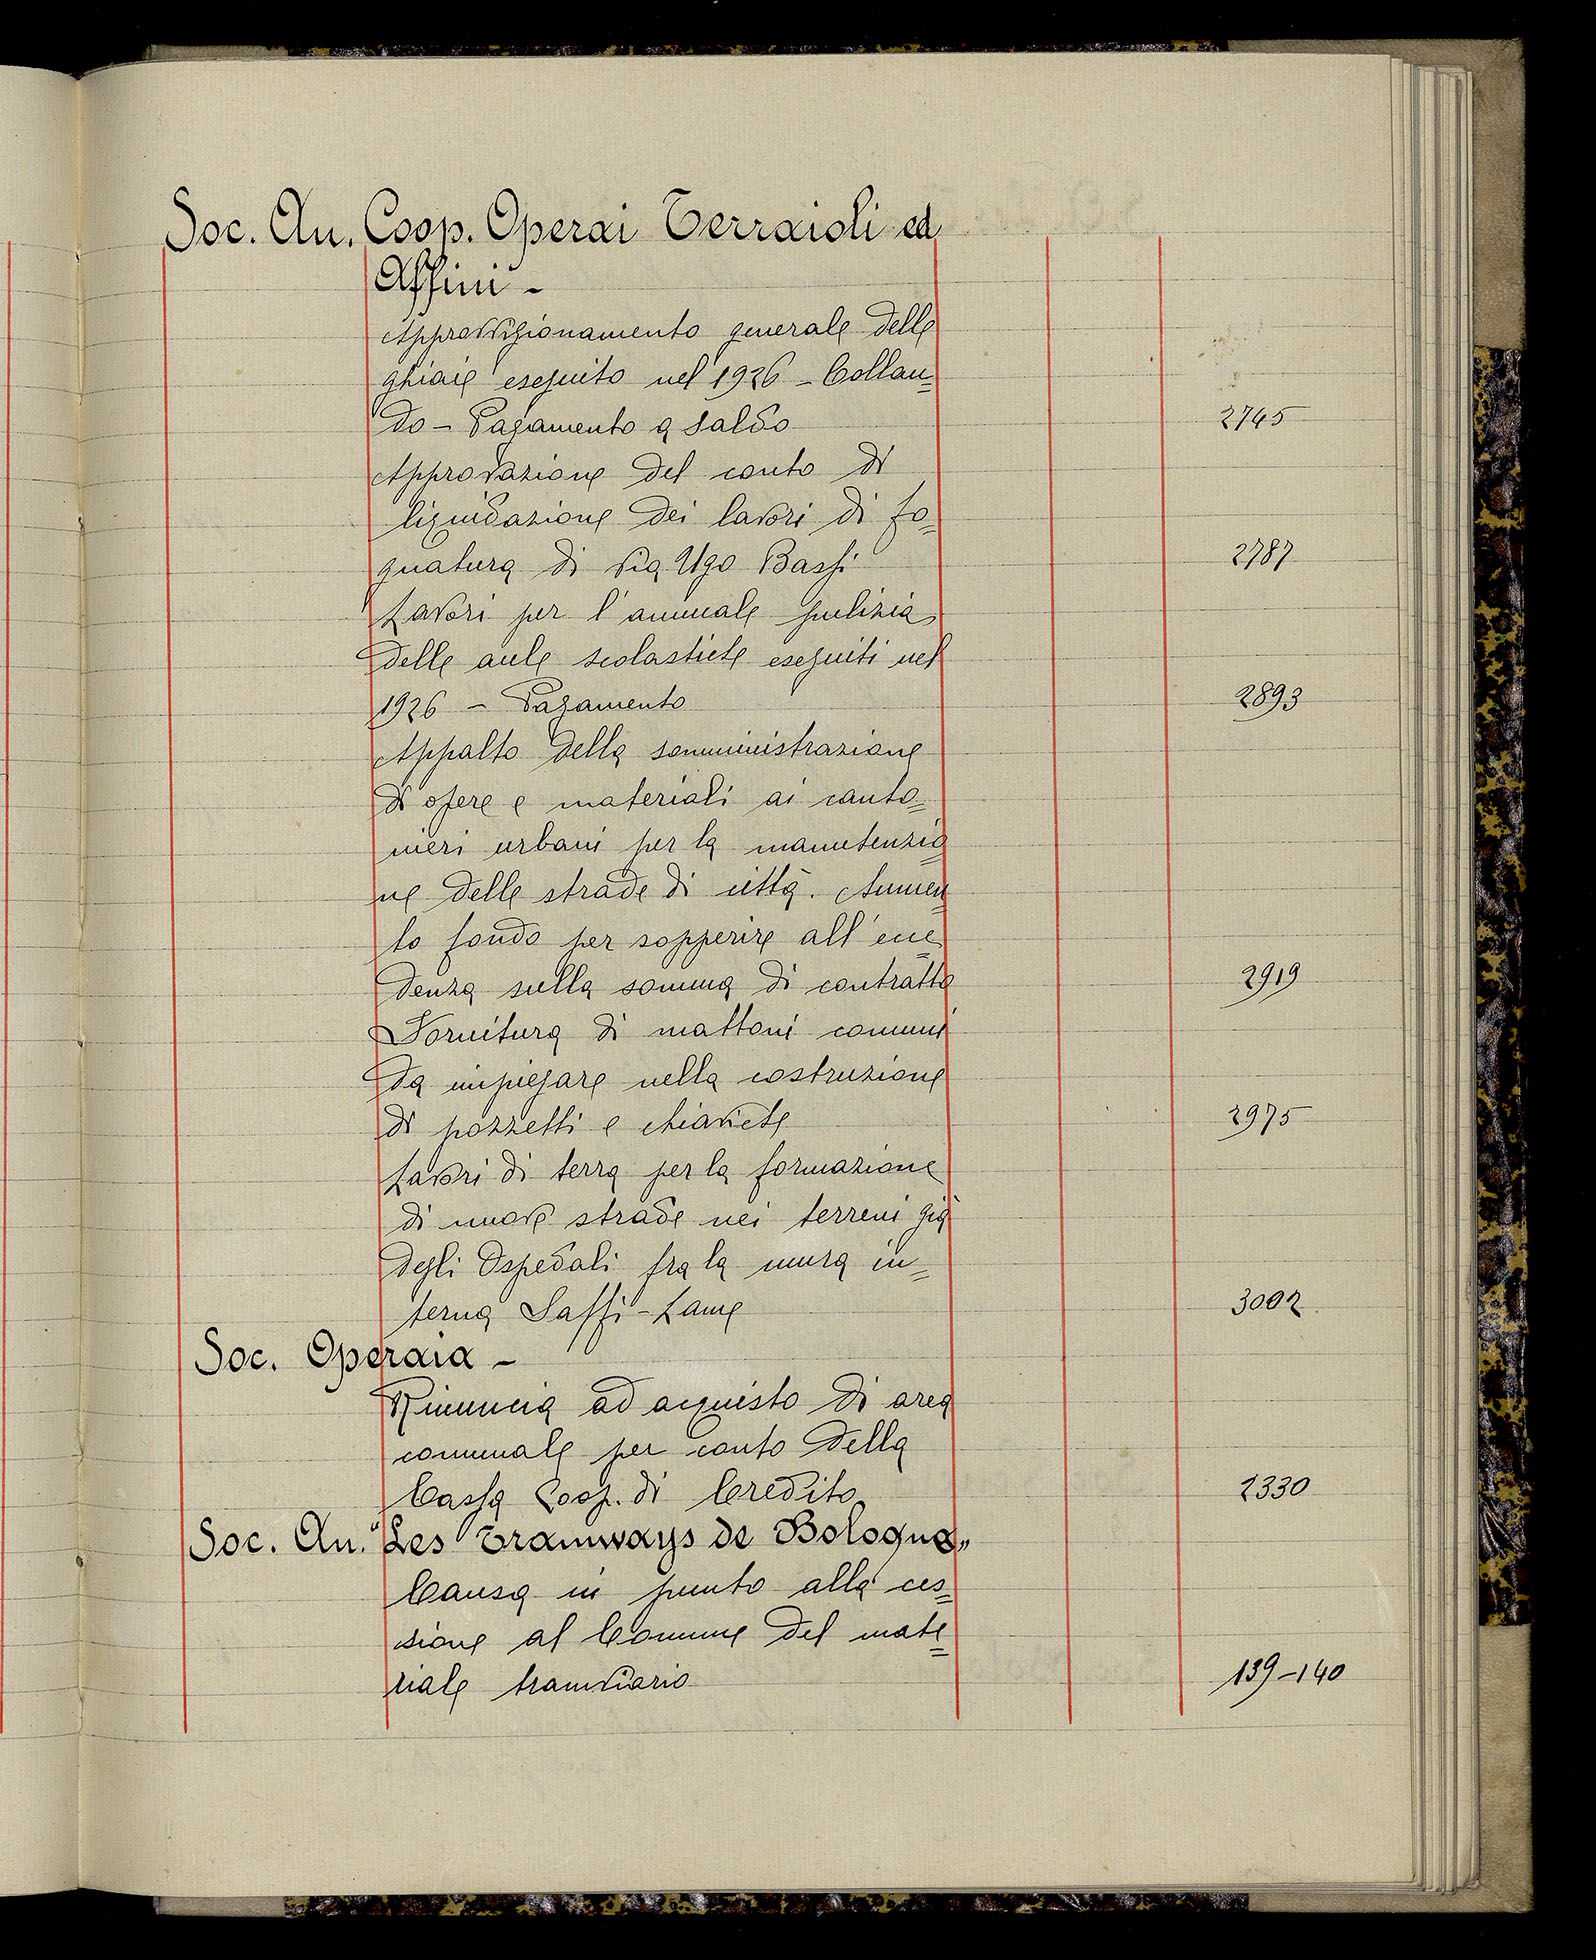 Soc. An. Coop. Operai Terraioli ed
Affini -
Approvvigionamento generale delle
ghiaie eseguito nel 1926 - Collau=
do - Pagamento a saldo 2745
Approvazione del conto di
liquidazione dei lavori di fo=
gnatura di via Ugo Bassi 2787
Lavori per l'annuale pulizia
delle aule scolastiche eseguiti nel
1926 - Pagamento 2893
Appalto della somministrazione
di opere e materiali ai canto=
nieri urbani per la manutenzio
ne delle strade di città. Aumen=
to fondo per sopperire all'ecce=
denza sulla somma di contratto 2919
Fornitura di mattoni comuni
da impiegare nella costruzione
di pozzetti e chiaviche 2975
Lavori di terra per la formazione
di nuove strade nei terreni già
degli Ospedali fra la mura in=
terna Saffi-Lame 3002
Soc. Operaia -
Rinuncia ad acquisto di area
comunale per conto della
Cassa Coop. di Credito 2330
Soc. An. "Les Tramways de Bologna„
Causa in punto alla ces=
sione al Comune del mate=
riale tramviario 139-140